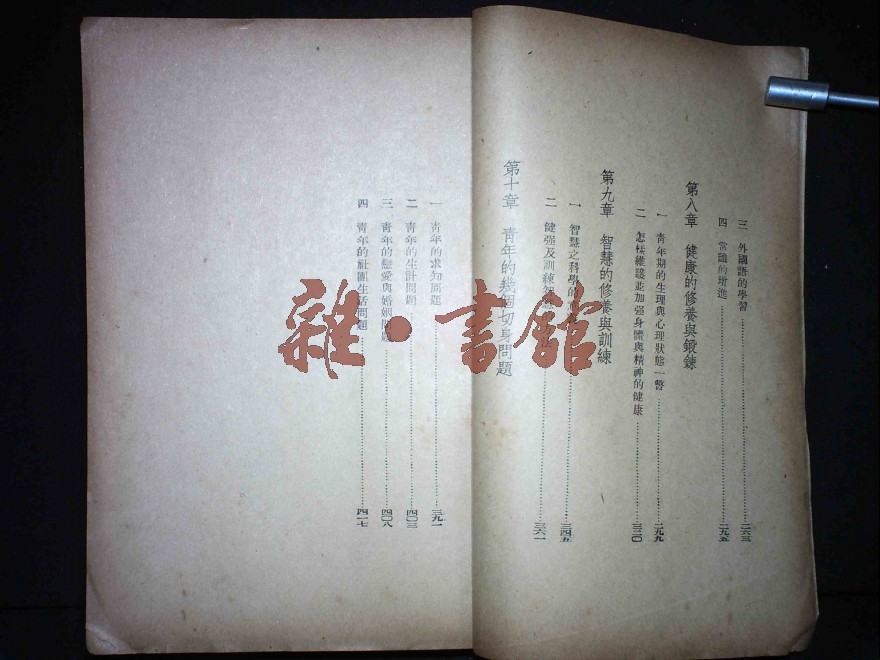 三 外國語的學習 二六三
四 常識的增進 二九五
第八章 健康的修養與鍛鍊
一 靑年期的生理與心理狀態一瞥 二九九
二 怎樣維護並加强身體與精神的健康 三三〇
第九章 智慧的修養與訓練
一 智慧之科學的 三四五
二 健强及訓練智 三六一
第十章 靑年的幾個切身問題
一 靑年的求知問題 三九一
二 靑年的生計問題 四〇三
三 靑年的戀愛與婚姻問題 四〇八
四 靑年的社團生活問題 四一七
雜·書館